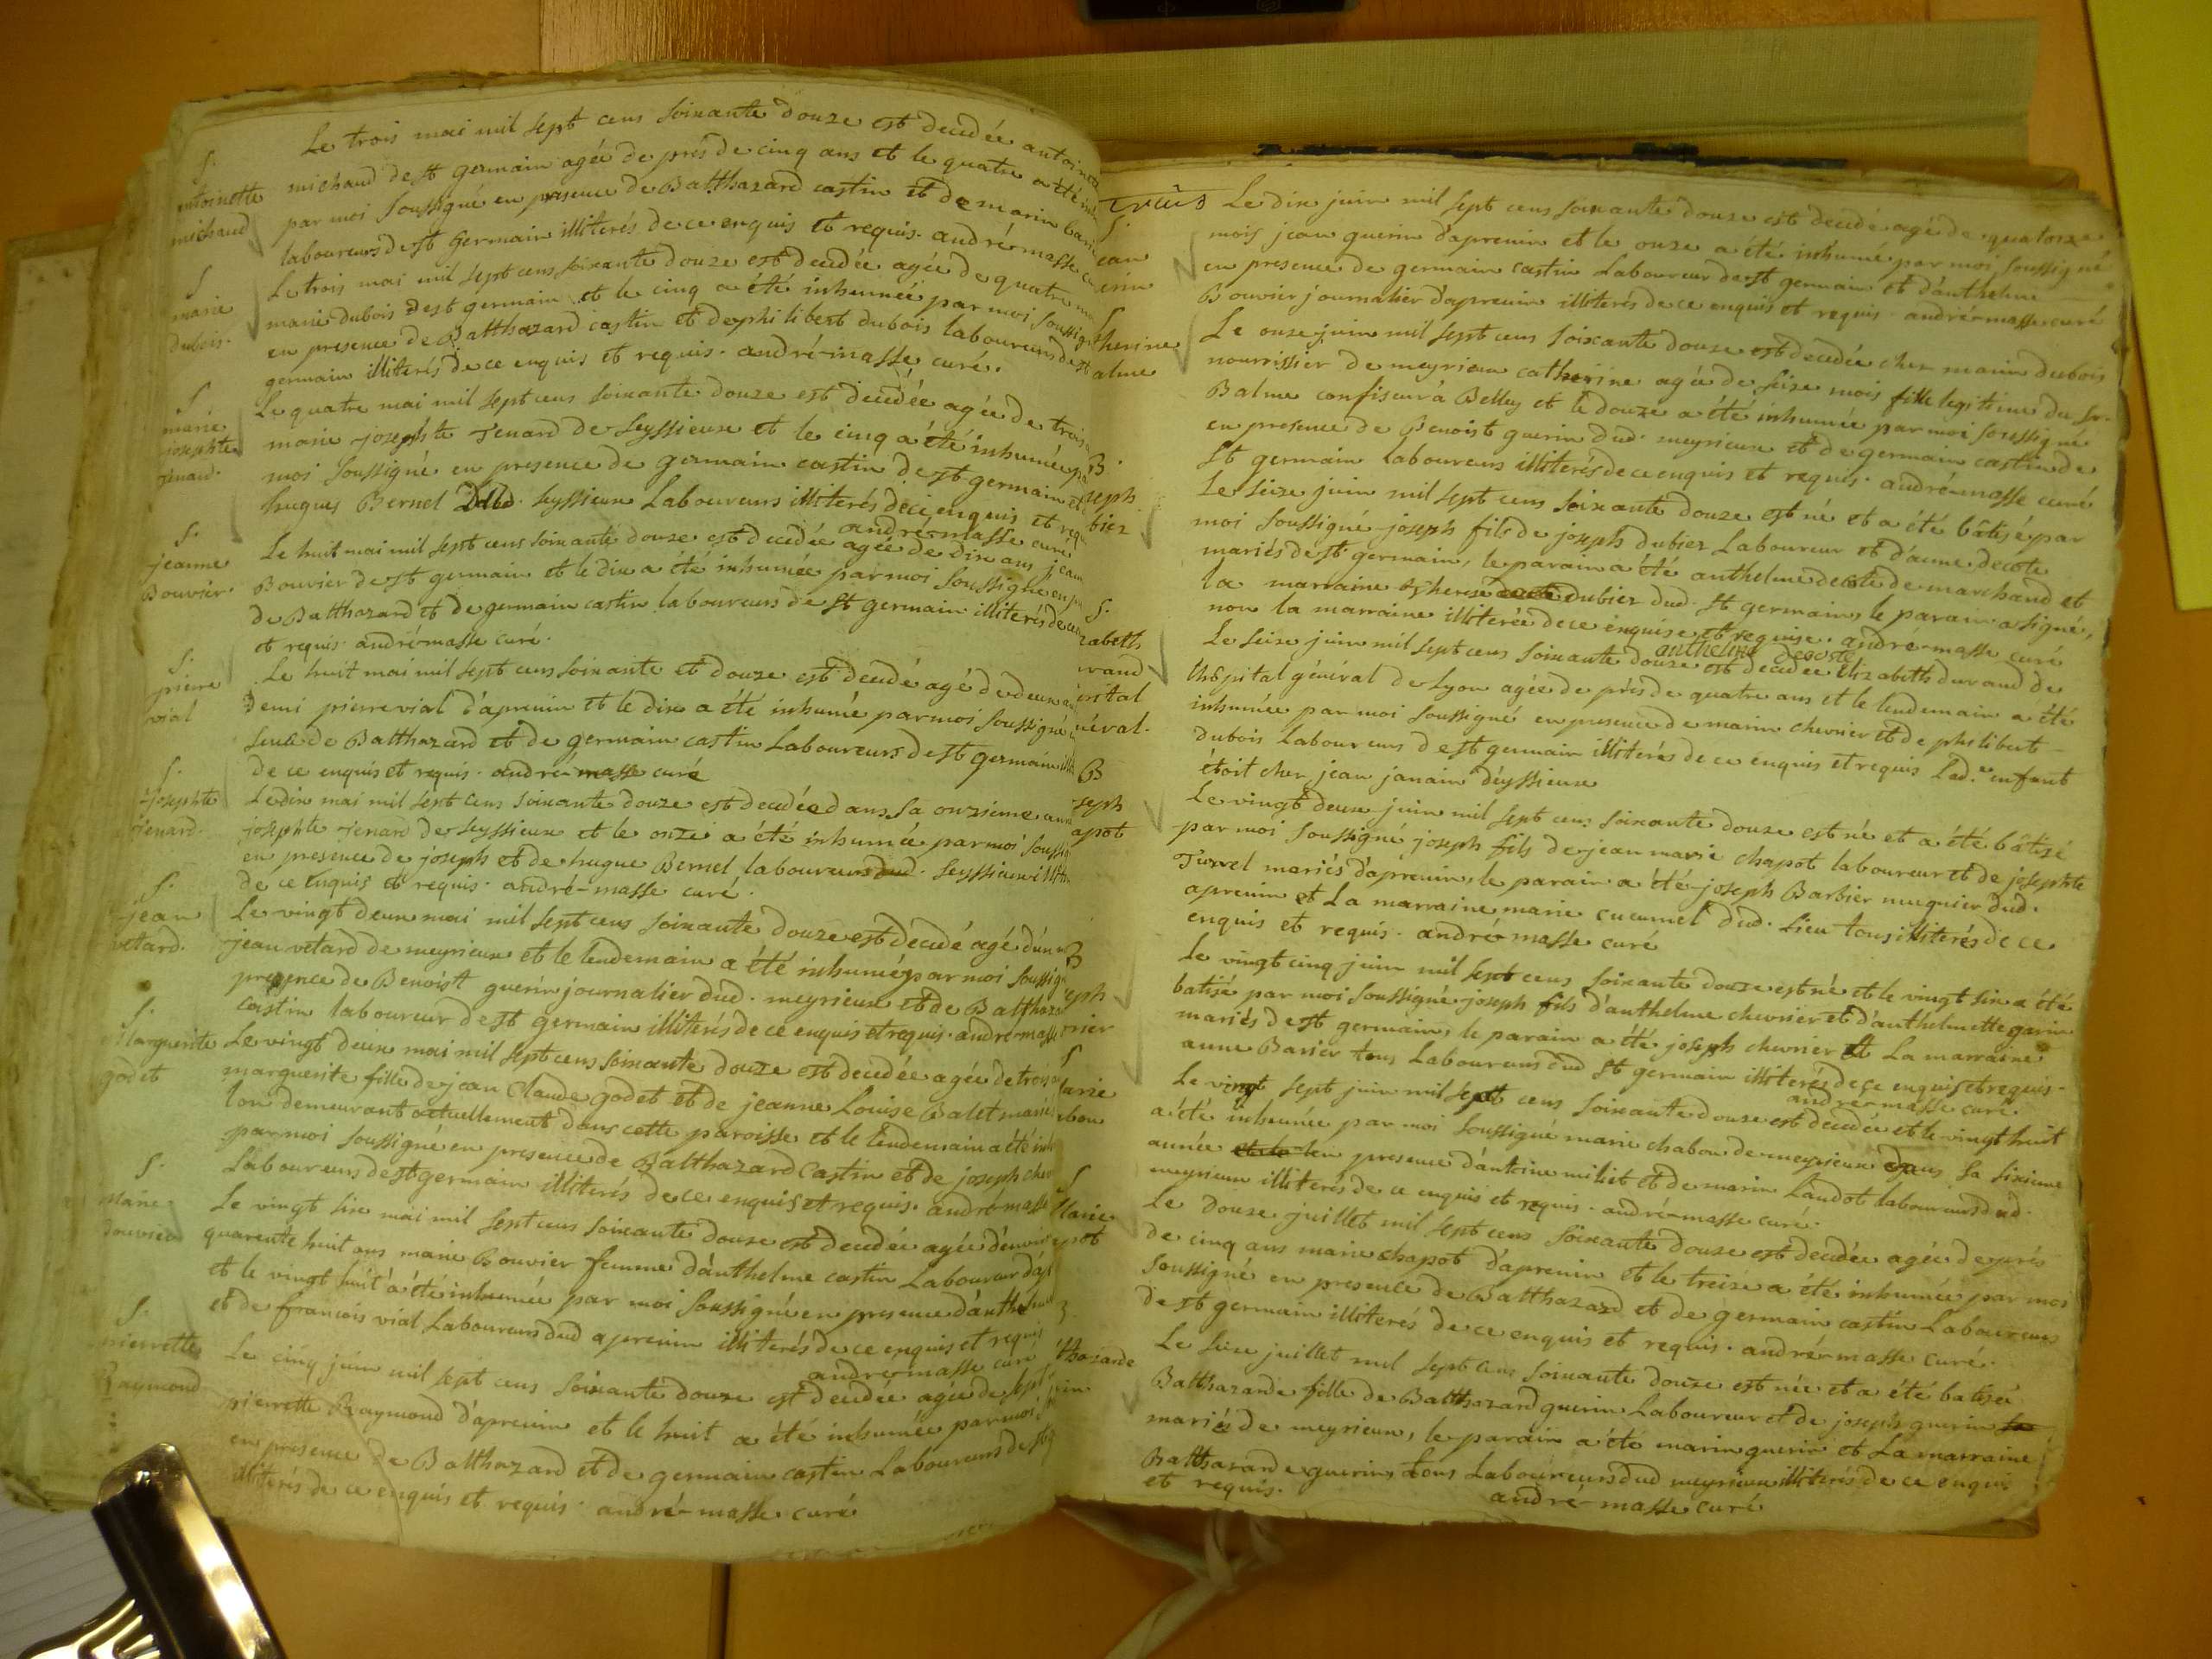 S.
antoinette
michaud
Le trois mai mil sept cens soixante douze est decedée antoinette
michaud de st germain agée de près de cinq ans et le quatre a été
par moi soussigné en presence de Balthazard castin et de marin
laboureurs de st germain illiterés de ce enquis et requis. andré-masse
S
marie
dubois.
Le trois mai mil sept cens soixante douze est decedée agée de quatre
marie dubois de st germain et le cinq a été inhumée par moi
en presence de Balthazard castin et de philibert dubois laboureurs de st
germain illiterés de ce enquis et requis. andré-masse curé.
S
marie
josephte
Le quatre mai mil sept cens soixante douze est decedée agée de trois
marie josephte Jenard de Seyssieux et le cinq a été inhumée
moi soussigné en presence de germain castin de st germain et
hugues Bernel dud. seyssieux Laboureurs illiterés de ce enquis et
andré-masse curé
S.
jeanne
Bouvier.
Le huit mai mil sept cens soixante douze est decedée agée de dix ans jeanne
Bouvier de st germain et le dix a été inhumée par moi soussigné en
de Balthazard et de germain castin laboureurs de st germain illiterés de ce
et requis. andré-masse curé.
S.
pierre
vial
Le huit mai mil sept cens soixante et douze est decedé agé de deux ans
demi pierre vial d'aprenin et le dix a été inhumé par moi soussigné
de Balthazard et de germain castin Laboureurs de st germain
de ce enquis et requis. andré-masse curé
S.
josephte
Jenard.
Le dix mai mil sept cens soixante douze est decedée dans sa onzieme
josephte Jenard de seyssieux et le onze a été inhumée par moi
en presence de joseph et de hugue Bernel laboureurs dud. seyssieux
de ce enquis et requis. andré-masse curé.
S.
jean
vetard.
Le vingt deux mai mil sept cens soixante douze est decedé agé d'un
jean vetard de meyrieux et le lendemain a été inhumé par moi
presence de Benoist guerin journalier dud. meyrieux et de
castin laboureur de st germain illiterés de ce enquis et requis. andré-masse
S.
Marguerite
godet
Le vingt deux mai mil sept cens soixante douze est decedée agée de trois
marguerite fille de jean Claude godet et de jeanne Louise Balet mariés
demeurant actuellement dans cette paroisse et le lendemain a été
par moi soussigné en presence de Balthazard Castin et de joseph
Laboureurs de st germain illiterés de ce enquis et requis. andré-masse
S.
marie
bouvier
Le vingt six mai mil sept cens soixante douze est decedée agée d'environ
quarente huit ans marie Bouvier femme d'anthelme castin Laboureur
et le vingt huit a été inhumée par moi soussigné en presence d'anthelme
et de francois vial Laboureurs dud aprenin illiterés de ce enquis et requis
andré-masse curé
S.
pierrette
Raymond
Le cinq juin mil sept cens soixante douze est decedée agée de sept
pierrette Raymond d'aprenin et le huit a été inhumée par moi
en presence de Balthazard et de germain castin Laboureurs de st
illiterés de ce enquis et requis. andré-masse curé
Le dix juin mil sept cens soixante douze est decedé agé de quatorze
mois jean guerin d'aprenin et le onze a été inhumé par moi soussigné
en presence de germain castin Laboureur de st germain et d'anthelme
Bouvier journalier d'aprenin illiterés de ce enquis et requis. andré-masse curé
therine
alme
Le onze juin mil sept cens soixante douze est decedée chez marin dubois
nourrissier de meyrieux catherine agée de seize mois fille legitime du Sr.
Balme confiseur à Belley et le douze a été inhumée par moi soussigné
en presence de Benoist guerin dud. meyrieux et de germain castin de
St germain laboureurs illiterés de ce enquis et requis. andré-masse curé
B.
seph
bier
Le seize juin mil sept cens soixante douze est né et a été bâtisé par
moi soussigné joseph fils de joseph dubier Laboureur et d'anne decote
mariés de st germain, le parain a été anthelme decote de marchand et
la marraine therese dubier dud. st germain, le parain a signé,
non la marraine illiterée de ce enquise et requise. andré-masse curé
anthelme decote
S.
zabeth
rand
pital
néral.
Le seize juin mil sept cens soixante douze est decedée Elizabeth durand de
l'hôpital général de Lyon agée de près de quatre ans et le lendemain a été
inhumée par moi soussigné en presence de marin chevrier et de philibert
Dubois laboureurs de st germain illiterés de ce enquis et requis Lad. enfant
étoit chez jean janain d'eyssieux
B
seph
apot
Le vingt deux juin mil sept cens soixante douze est né et a été bâtisé
par moi soussigné joseph fils de jean marie chapot laboureur et de josephte
Turrel mariés d'aprenin, le parain a été joseph Barbier mugnier dud.
aprenin et La marraine marie dud. Lieu tous illiterés de ce
enquis et requis. andré-masse curé
B
eph
rier
Le vingt cinq juin mil sept cens soixante douze est né et le vingt six a été
batisé par moi soussigné joseph fils d'anthelme chevrier et d'anthelmette garin
mariés de st germain, le parain a été joseph chevrier et La marraine
anne Barier tous Laboureurs dud st germain illiterés de ce enquis et requis.
andré-masse curé.
S
arie
abon
Le vingt sept juin mil sept cens soixante douze est decedée et le vingt huit
a été inhumée par moi soussigné marie chabon de meyrieux dans sa sixieme
année en presence d'antoine miliet et de marin Landot laboureurs dud.
meyrieux illiterés de ce enquis et requis. andré-masse curé.
S
Marie
apot
Le Douze juillet mil sept cens soixante douze est decedée agée de près
de cinq ans marie chapot d'aprenin et le treize a été inhumée par moi
soussigné en presence de Balthazard et de germain castin Laboureurs
de st germain illiterés de ce enquis et requis. andré-masse curé.
thazarde
Le seize juillet mil sept cens soixante douze est née et a été batisée
Balthazarde fille de Balthazard guerin Laboureur et de joseph guerin
mariés de meyrieux, le parain a été marin guerin et La marraine
Balthazarde guerin, tous Laboureurs dud meyrieux illiterés de ce enquis
et requis.
andré-masse curé